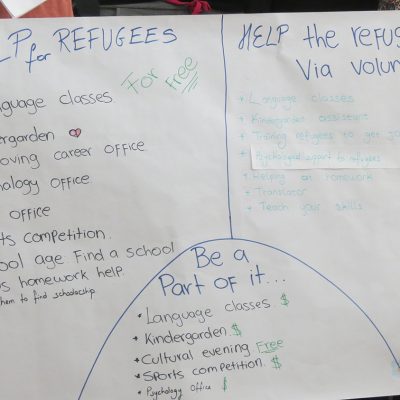 LP for REFUGEES
For Free
nguage classes
ergarden
oving career office
hology office
office
ts competition.
ool age Find a school
s homework help
them to find scholarship
HELP the refug
Via volun
+ Language classes
+ Kindergarden assistant
+ Training refugees to get jo
+ Psychological support to refugees
+ Helping on homework
+ Translator
+ Teach your skills
Be a
Part of it...
* Language classes. $
* Kindergarden $
* Cultural evening Free
* Sports competition. $
* Psychology office $